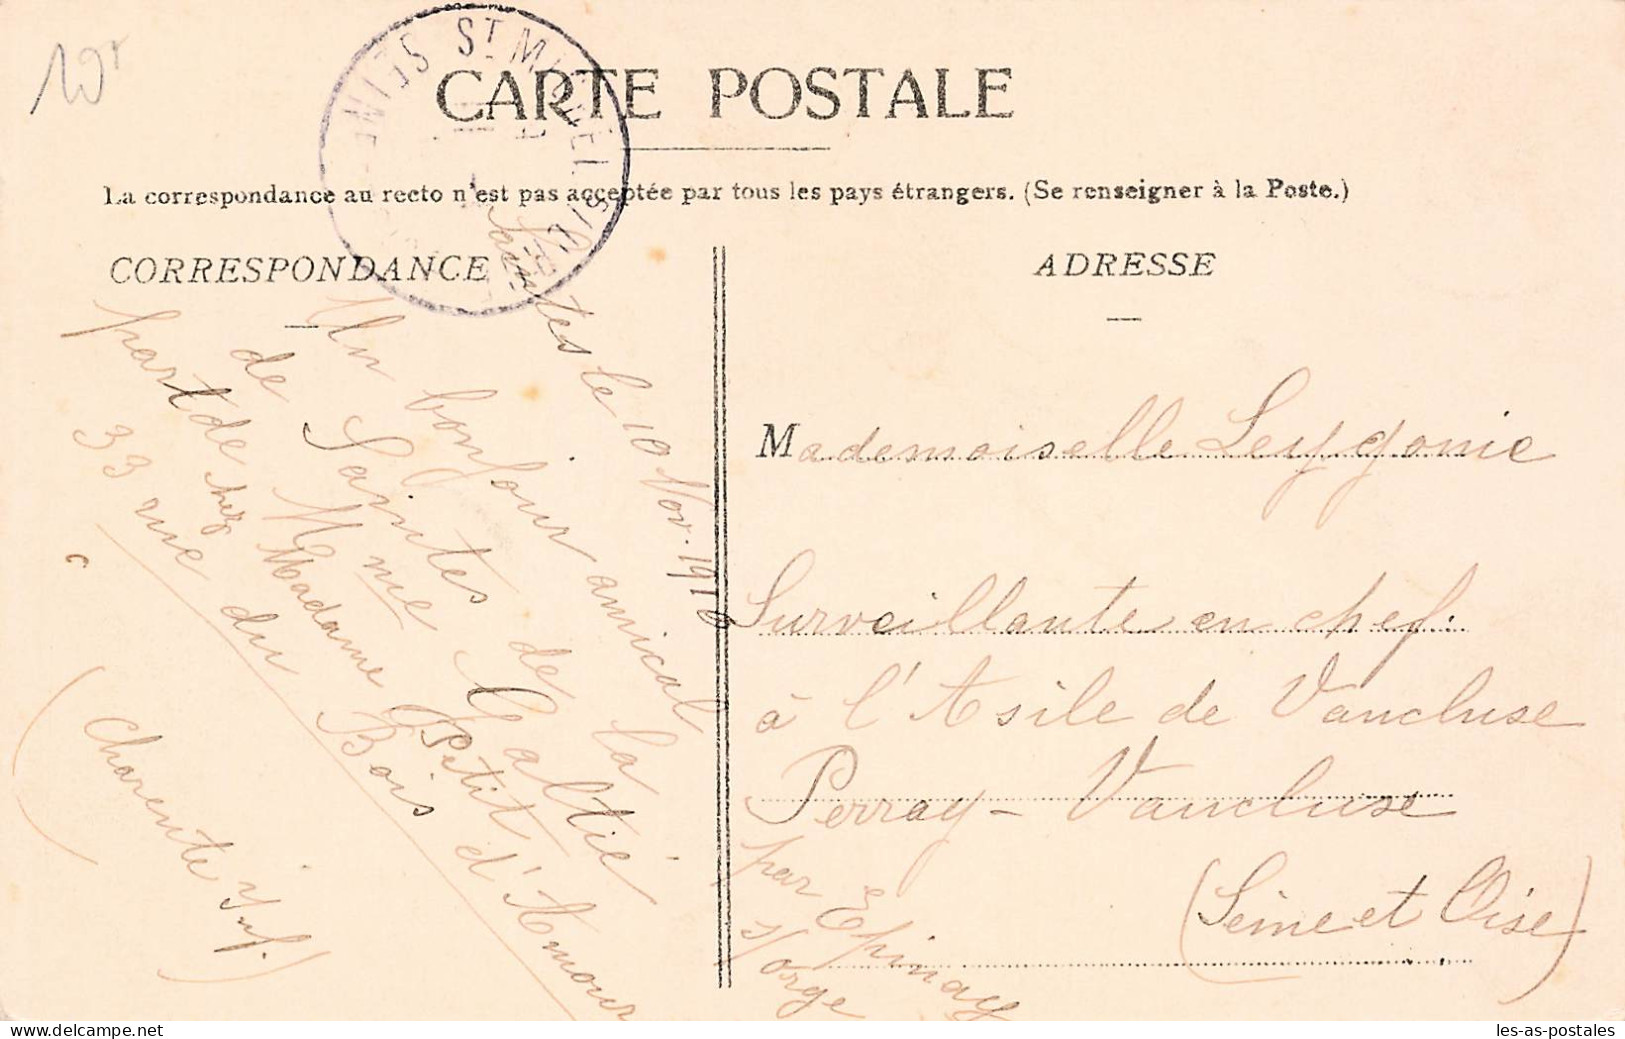 10f
CARTE POSTALE
La correspondance au recto n'est pas acceptée par tous les pays étrangers. (Se renseigner à la Poste.)
CORRESPONDANCE
Saintes le 10 Nov. 1910
Un bonjour amical
de Saintes de la
part de Mme Galtié
chez Madame Petit d'Amour
33 rue du Bois
(Charente Inf.)
ADRESSE
Mademoiselle Leygonie
Surveillante en chef.
à l'Asile de Vaucluse
Perray-Vaucluse
par Epinay
s/Orge
(Seine et Oise)
ST MICHEL
www.delcampe.net
les-as-postales